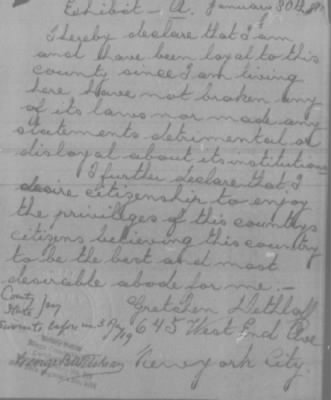 Exhibit - A. January 30th
I hereby declare that I am
and have been loyal to this
county since I am living
here have not broken any
of its laws nor made any
statements detrimental or
disloyal about its institutions
I further declare that I
desire citizenship to enjoy
the privileges of this countrys
citizens believing this country
to be the best and most
desirable abode for me. -
County
State
Gretchen Dethloff
before me
19
645 West End Ave
New York City.